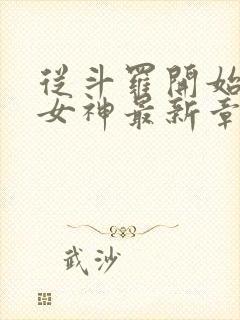 從斗羅開始
女神最新章
武沙